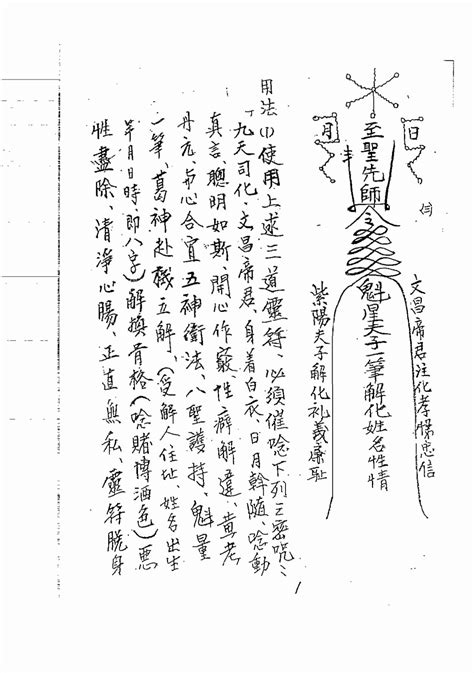 (三)
日
月
至聖先師
文昌帝君注化孝悌忠信
魁星夫子一筆解化姓名性情
紫陽夫子解化礼義廉耻
用法(1)使用上述三道靈符、必須催唸下列三密咒:
「九天司化、文昌帝君、身着白衣、日月斡隨、唸動
真言、聰明如斯、開心作竅、性癖解違、黄老
丹元、与心合宜、五神衛法、八聖護持、魁星
一筆、葛神赴機立解、(受解人住址、姓名出生
年月日時、即八字)解煩骨格(唸賭博酒色)悪
性盡除、清淨心腸、正直無私、靈符脱身